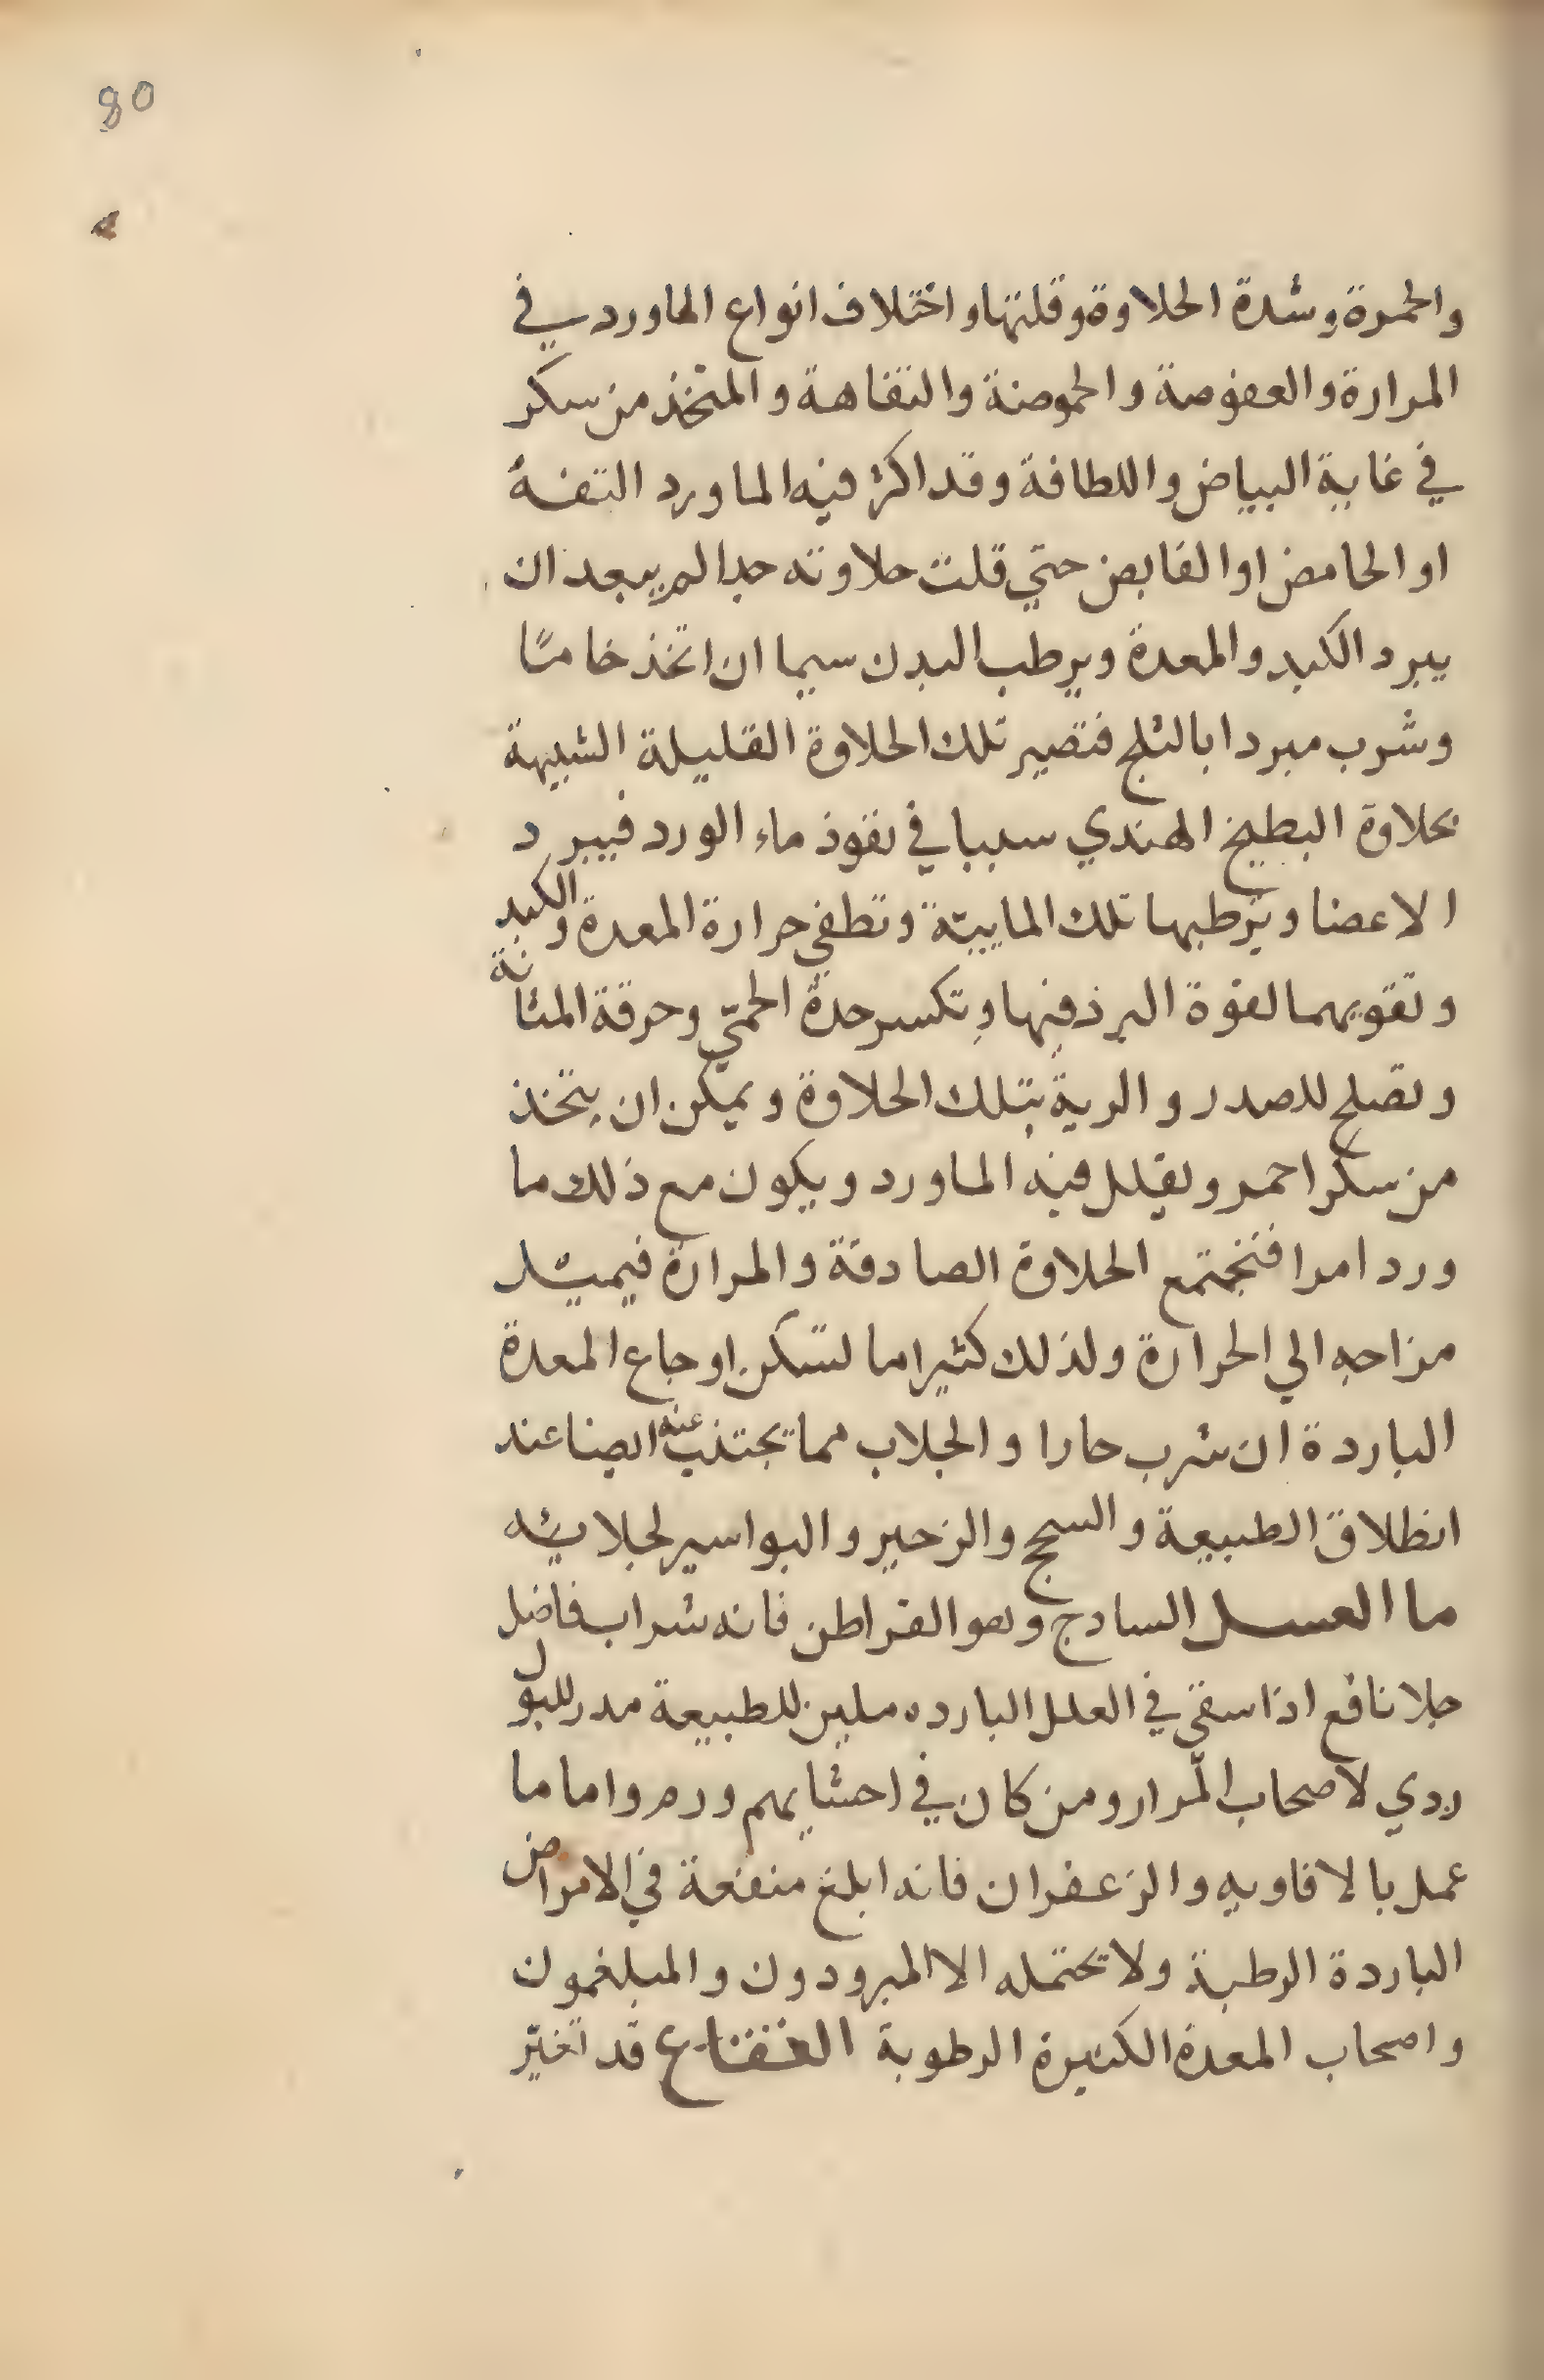 80
والحمرة وشدة الحلاوة وقلتها واختلاف انواع الماورد في
المرارة والعفوصة والحموضة والتفاهة والمتخذ من سكر
في غاية البياض واللطافة وقد اكثر فيه الماورد التفه
او الحامض او القابض حتي قلت حلاوته جدا لم يبعد ان
يبرد الكبد والمعدة ويرطب البدن سيما ان اتخذ خامسًا
وشرب مبردا بالثلج فتصير تلك الحلاوة القليلة الشبيهة
بحلاوة البطيخ الهندي سببا في نفوذ ماء الورد فيبرد
الاعضا ويرطبها تلك الماييّة وتطفي حرارة المعدة والكبد
وتقويهما لقوة البرد فيها وتكسر حدة الحمّي وحرقة المثانة
وتصلح للصدر والرية بتلك الحلاوة ويمكن ان يتخذ
من سكر احمر ويقلل فيه الماورد ويكون مع ذلك ما
ورد امرا فتجتمع الحلاوة الصادقة والمرارة فيميل
مزاجه الي الحرارة ولذلك كثيرا ما تسكن اوجاع المعدة
الباردة ان شرب حارا والجلاب مما تجتنب عنه ايضا عند
انطلاق الطبيعة والسحج والزحير والبواسير لجلايئه
ما العسل السادج وهو القراطن فانه شراب فاضل
جلا نافع اذا سقي في العلل البارده ملين للطبيعة مدر للبول
ردي لاصحاب المرار ومن كان في احشايهم ورم واما ما
عمل بالافاويه والزعفران فانه ابلغ منفعة في الامراض
الباردة الرطبة ولا تحتمله الا المبرودون والمبلغمون
واصحاب المعدة الكثيرة الرطوبة الفقاع قد تغيّر